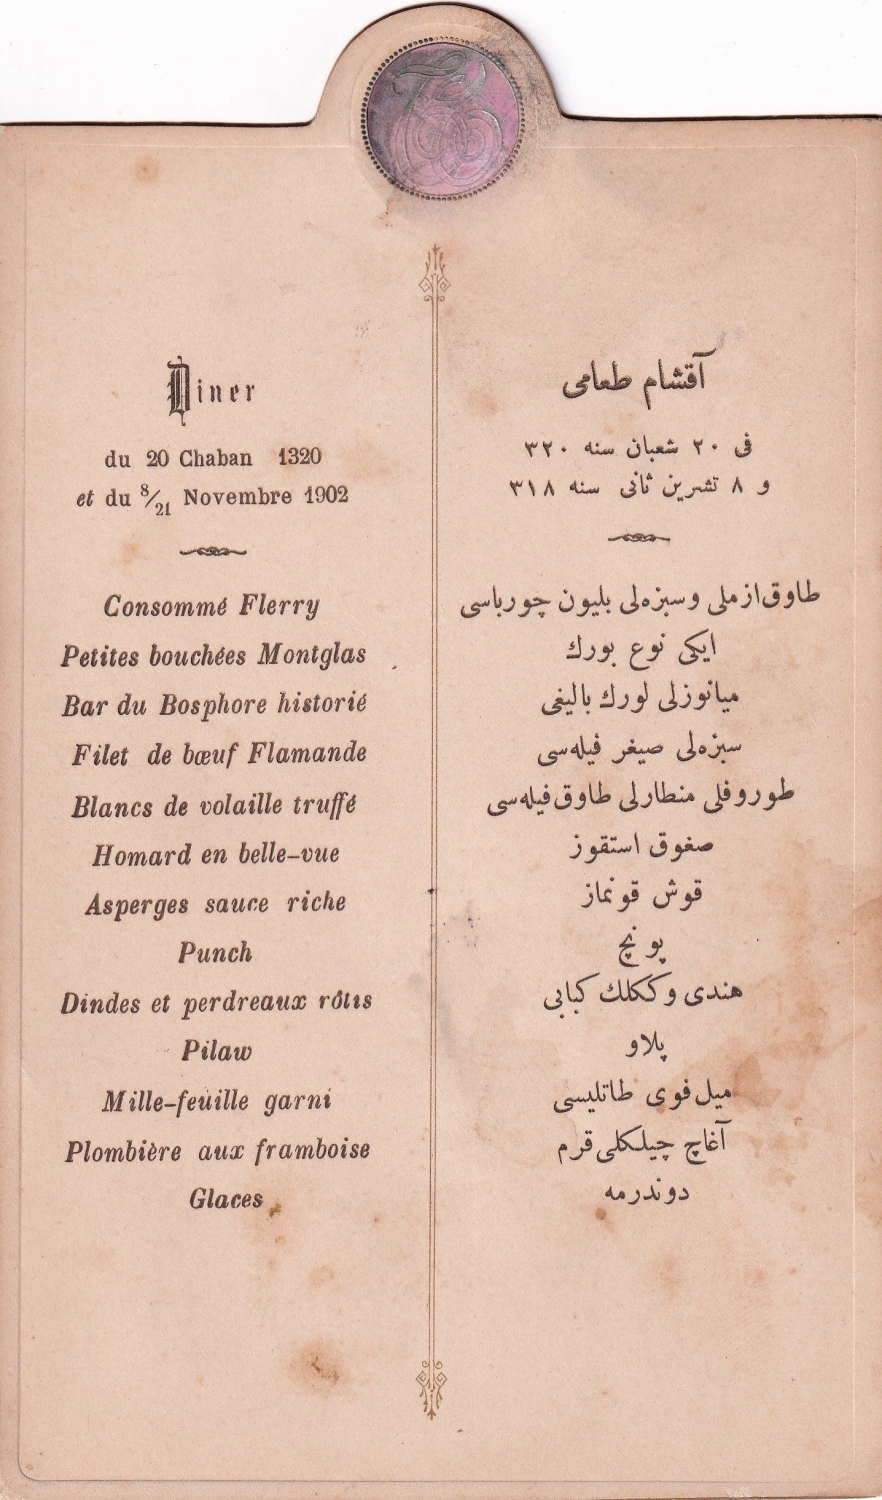 Diner
du 20 Chaban 1320
et du 8/21 Novembre 1902
Consommé Flerry
Petites bouchées Montglas
Bar du Bosphore historié
Filet de bœuf Flamande
Blancs de volaille truffé
Homard en belle-vue
Asperges sauce riche
Punch
Dindes et perdreaux rôtis
Pilaw
Mille-feuille garni
Plombière aux framboise
Glaces
آقشام طعامی
فی ٢٠ شعبان سنه ٣٢٠
و ٨ تشرین ثانی سنه ٣١٨
طاوق ازملی و سبزه‌لی بلیون چورباسی
ایکی نوع بورك
میانوزلی لورك بالیغی
سبزه‌لی صیغر فیله‌سی
طوروفلی منطارلی طاوق فیله‌سی
صغوق استقوز
قوش قونماز
پونچ
هندی و ککلك کبابی
پلاو
میل فوی طاتلیسی
آغاچ چیلکلی قرم
دوندرمه